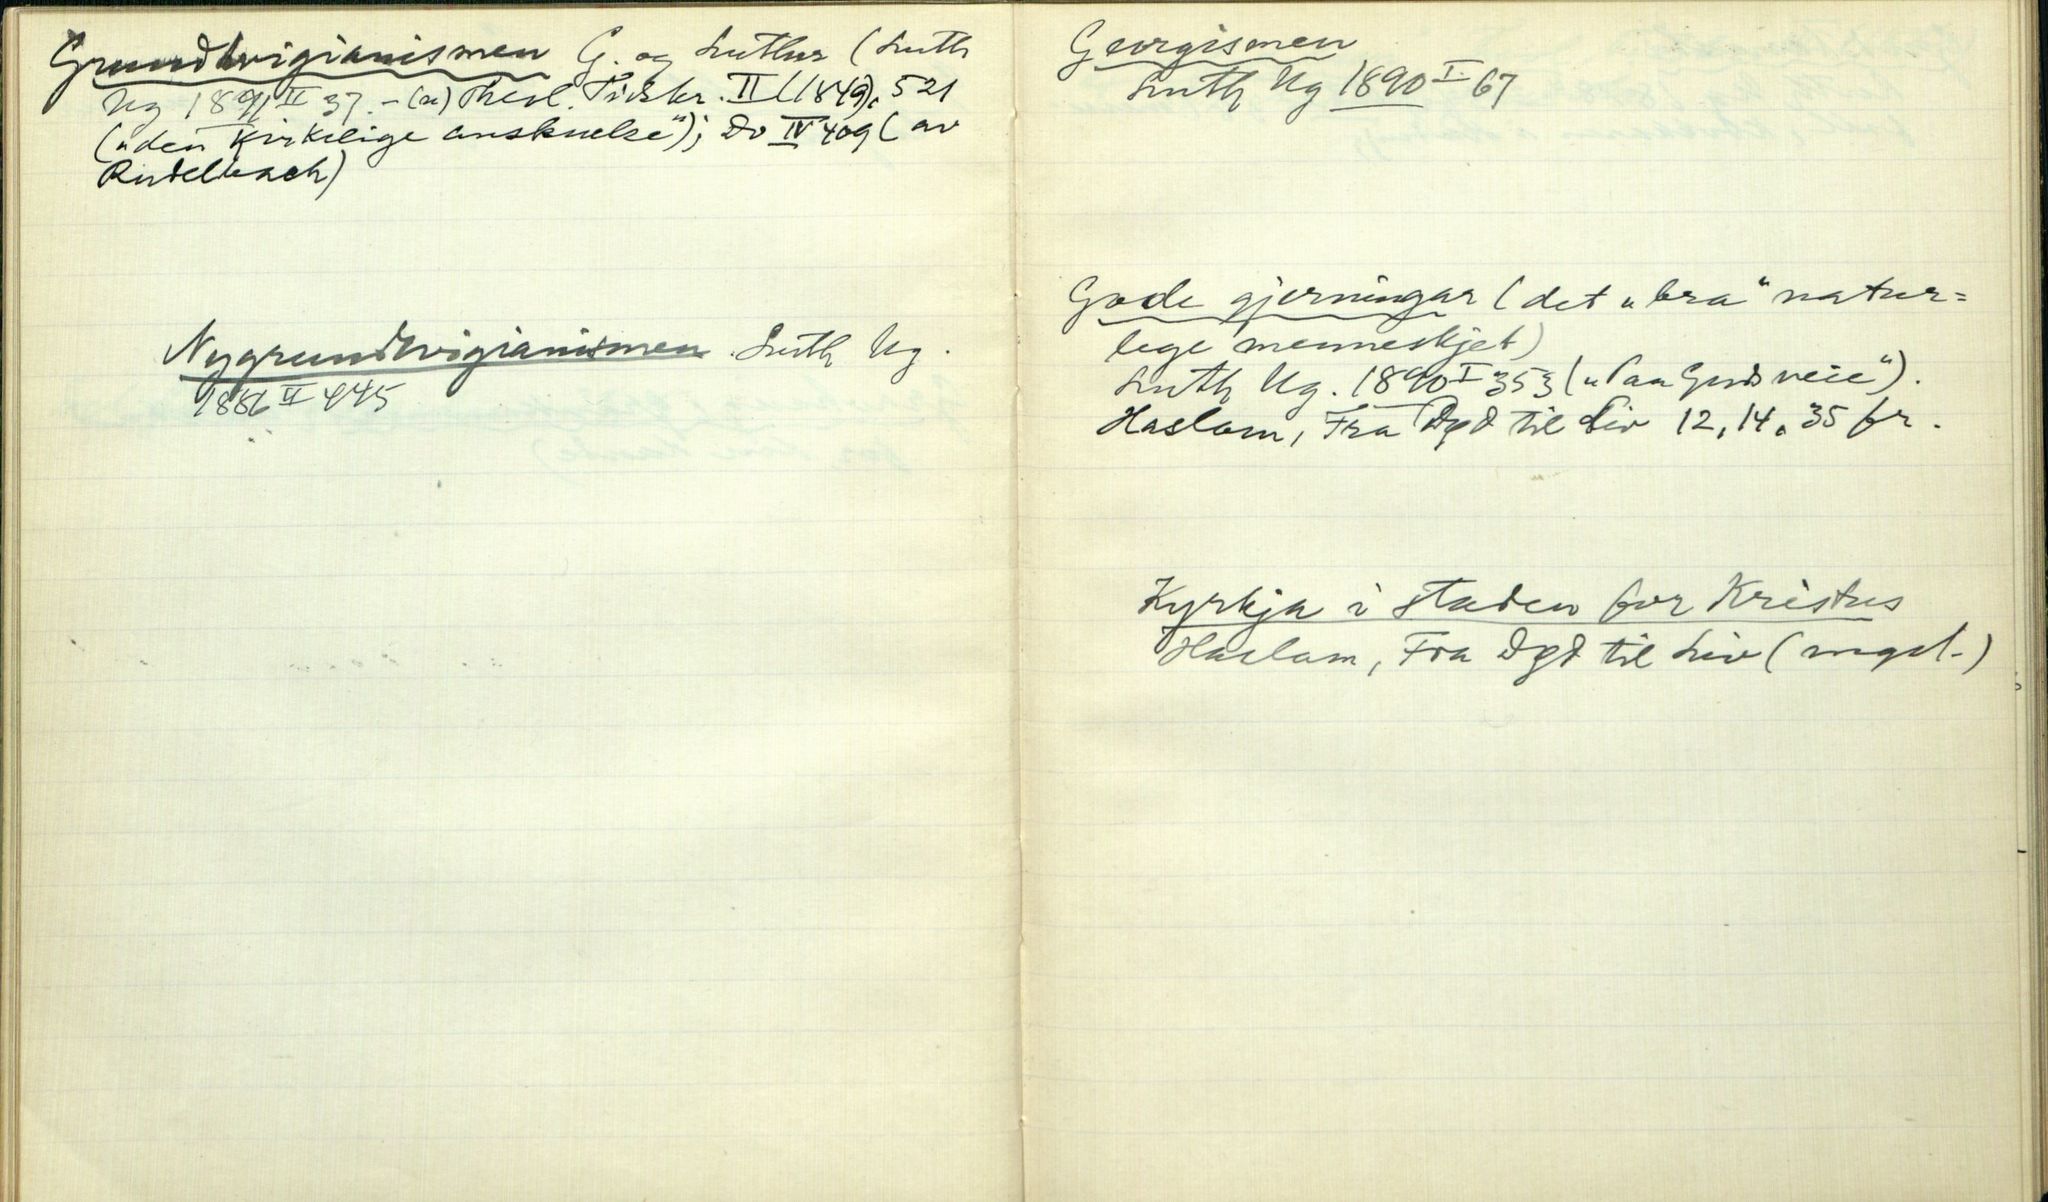 Grundtvigianismen G. og Luther (Luth
Ug 1891 II 37. – (n) Theol. Tidskr. II (1849), 521
(„den Kirkelige anskuelse"); Do IV 409 (av
Rudelbach)
Nygrundtvigianismen. Luth Ug.
1886 II 445
Georgismen
Luth Ug 1890 I 67
Gode gjerningar (det „bra" natur=
lege menneskjet)
Luth Ug. 1890 I 353 („Paa Guds veie").
Haslam, Fra Død til Liv 12, 14, 35 fr.
Kyrkja i staden for Kristus
Haslam, Fra Død til Liv (